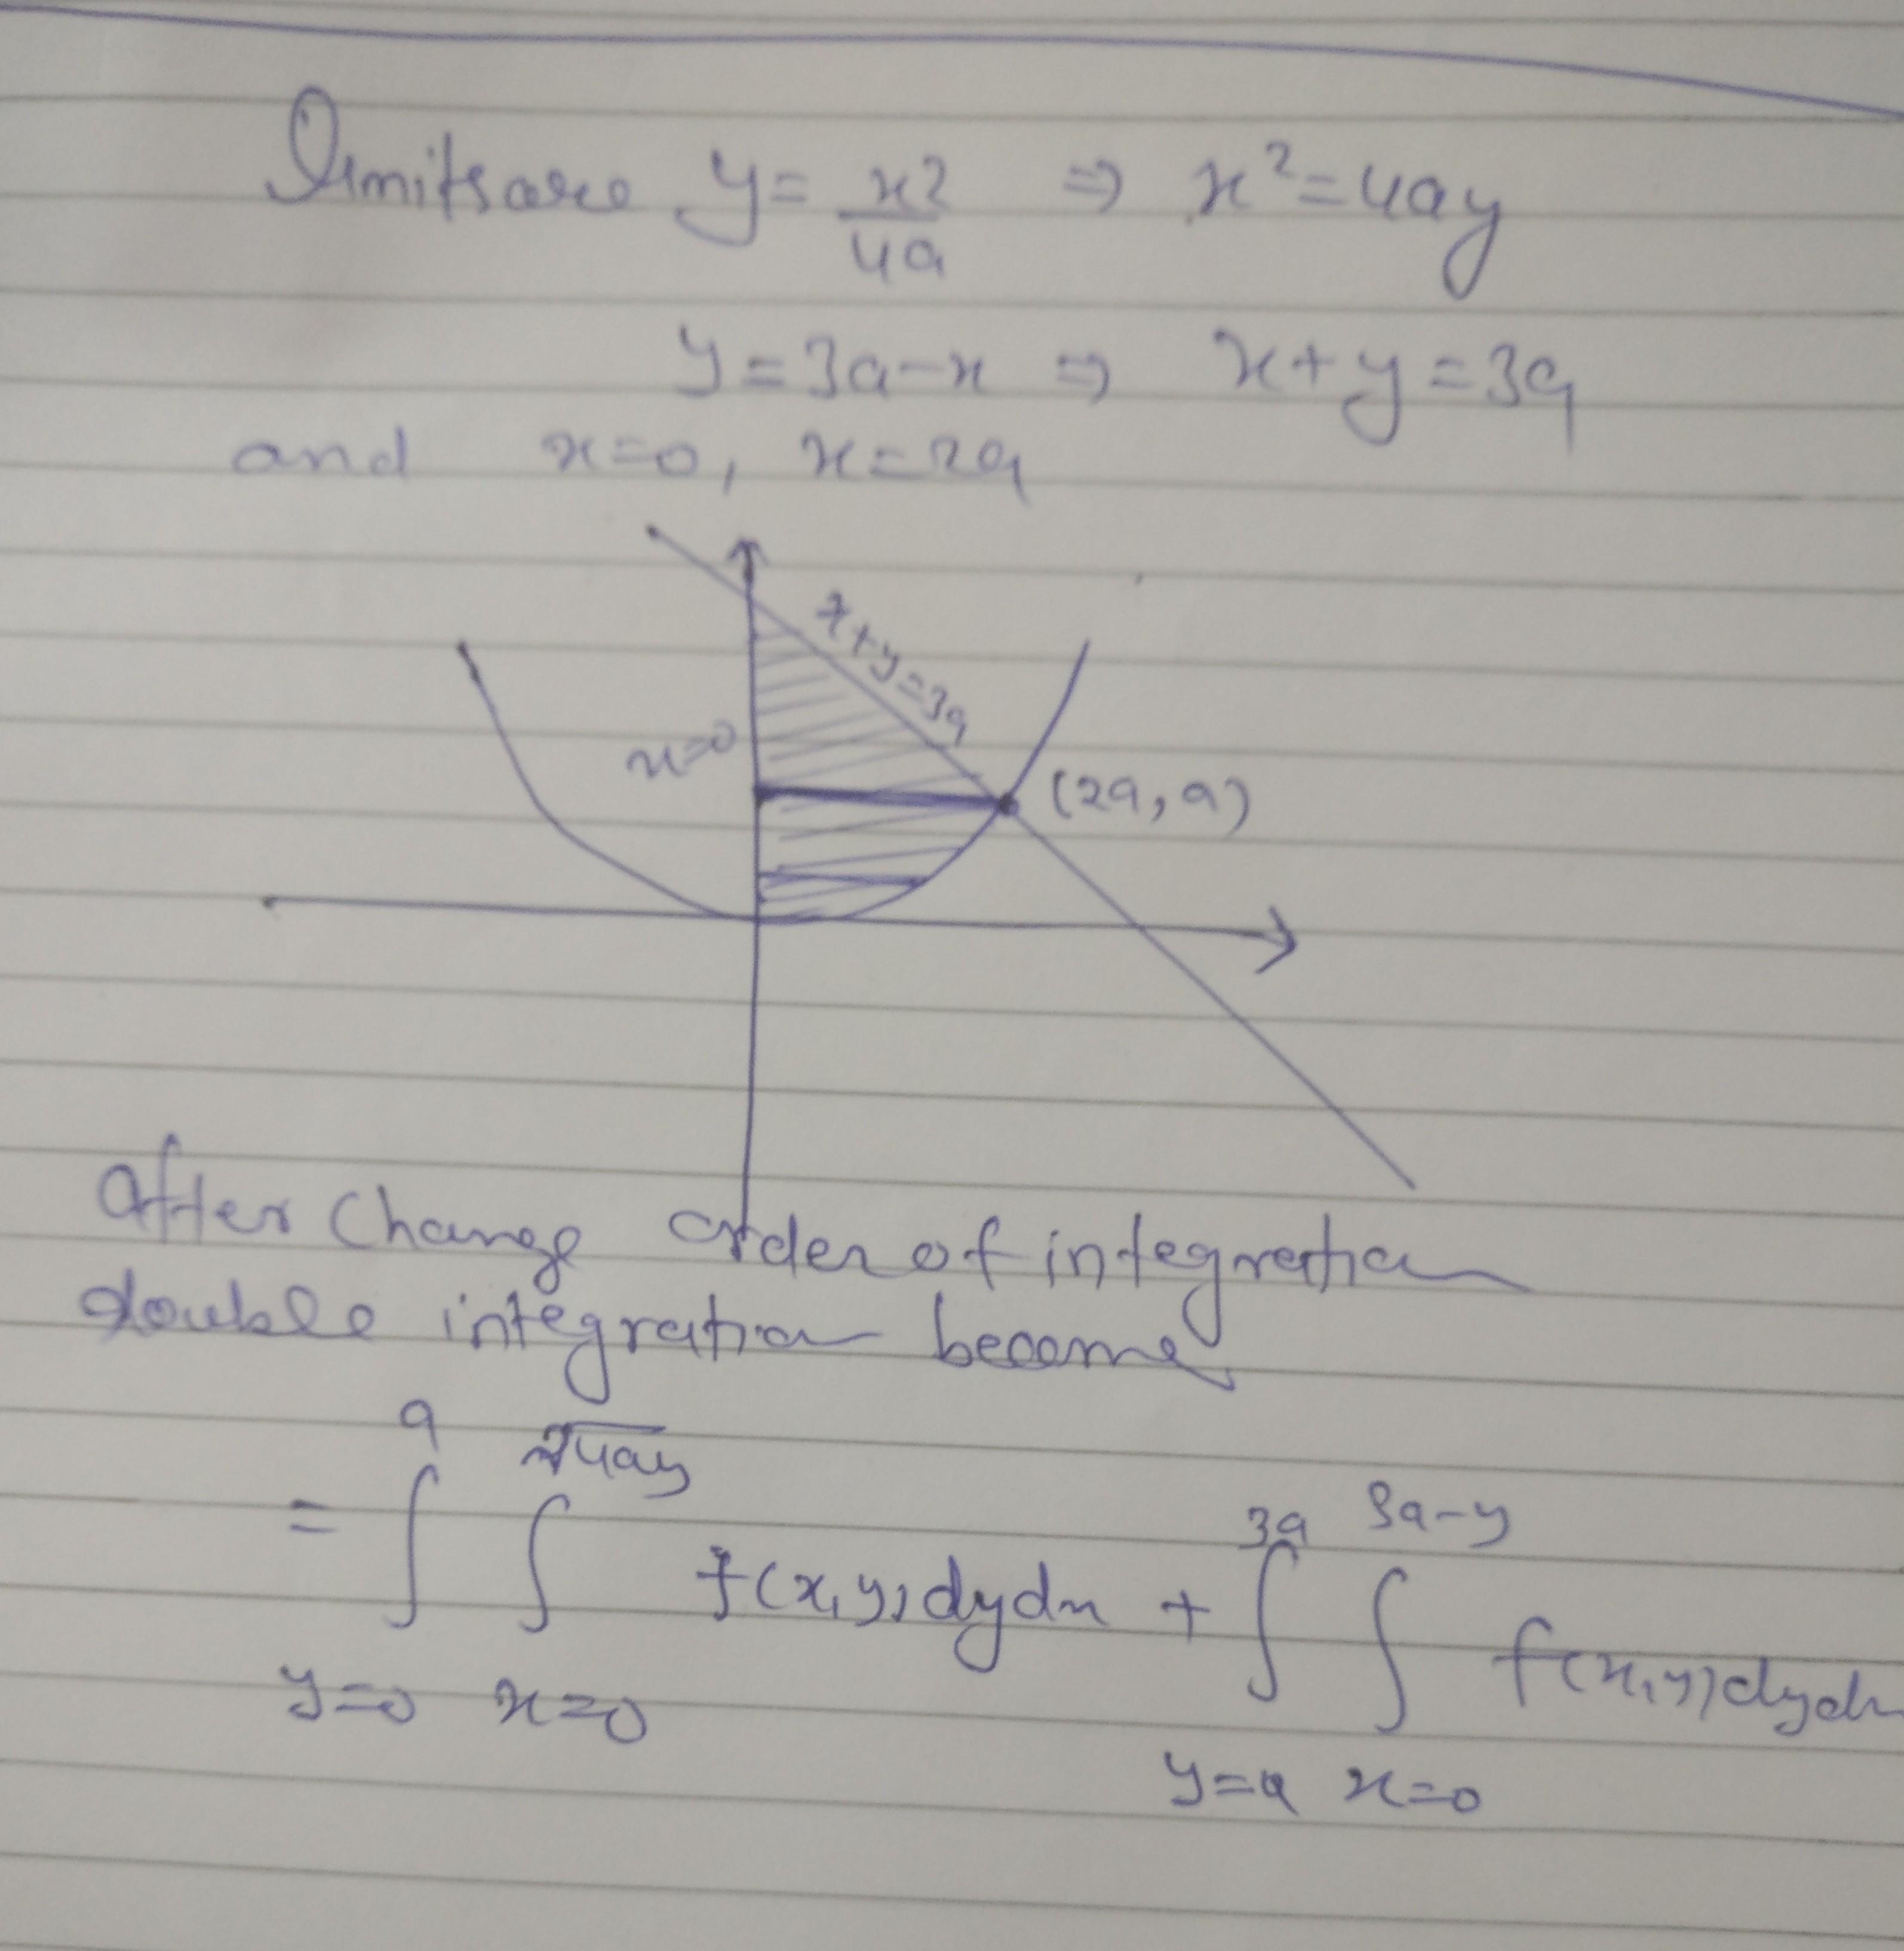 limits are y = x²/4a ⇒ x² = 4ay
y = 3a-x ⇒ x+y = 3a
and x=0, x=2a
x+y=3a
x=0
(2a, a)
After Change order of integration
double integration becomes
= ∫_{y=0}^{a} ∫_{x=0}^{√4ay} f(x,y) dy dx + ∫_{y=a}^{3a} ∫_{x=0}^{3a-y} f(x,y) dy dx